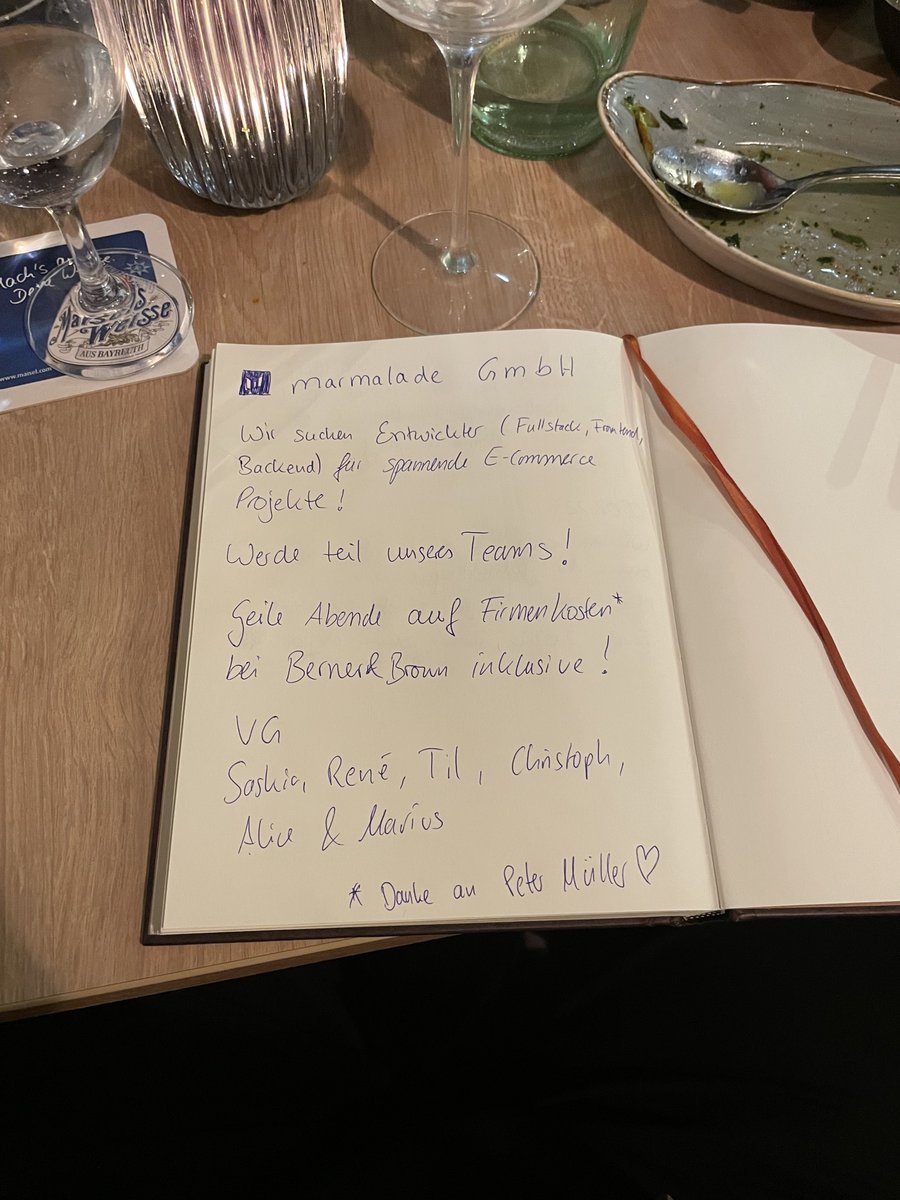 Mach's
Dein
Maisel's
Weisse
AUS BAYREUTH
www.maisel.com
marmalade GmbH
Wir suchen Entwickler (Fullstack, Frontend,
Backend) für spannende E-Commerce
Projekte!
Werde teil unseres Teams!
Geile Abende auf Firmenkosten*
bei Berner&Brown inklusive!
VG
Saskia, René, Til, Christoph,
Alice & Marius
* Danke an Peter Müller♡